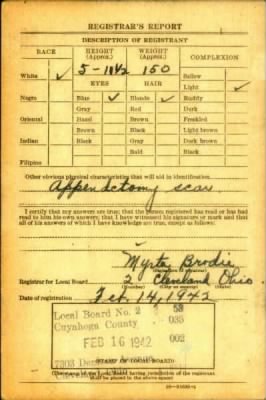 REGISTRAR'S REPORT
DESCRIPTION OF REGISTRANT
RACE HEIGHT (Approx.) WEIGHT (Approx.) COMPLEXION
White ✓ 5-10½ 150 Sallow
EYES HAIR Light ✓
Negro Blue ✓ Blonde ✓ Ruddy
Gray Red Dark
Oriental Hazel Brown Freckled
Brown Black Light brown
Indian Black Gray Dark brown
Bald Black
Filipino
Other obvious physical characteristics that will aid in identification
Appendectomy scar
I certify that my answers are true; that the person registered has read or has had
read to him his own answers; that I have witnessed his signature or mark and that
all of his answers of which I have knowledge are true, except as follows:
Myrta Brodie
(Signature of registrar)
Registrar for Local Board 20 Cleveland Ohio
(Number) (City or county) (State)
Date of registration Feb. 14, 1942
Local Board No. 2 53
Cuyahoga County 035
FEB 16 1942 002
7303
STAMP OF LOCAL BOARD
(The stamp of the Local Board having jurisdiction of the registrant
shall be placed in the above space.)